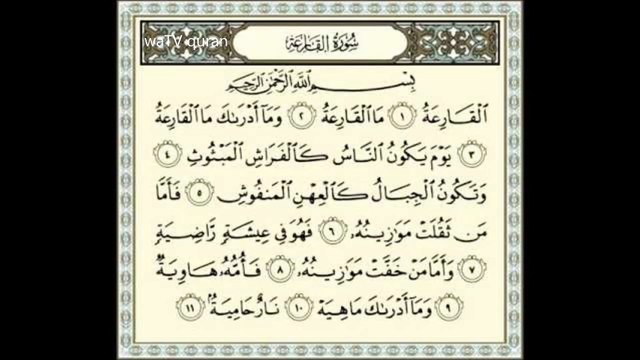 waTV quran
سُورَةُ القَارِعَة
بِسْمِ اللَّهِ الرَّحْمَٰنِ الرَّحِيمِ
الْقَارِعَةُ ١ مَا الْقَارِعَةُ ٢ وَمَا أَدْرَىٰكَ مَا الْقَارِعَةُ
٣ يَوْمَ يَكُونُ النَّاسُ كَالْفَرَاشِ الْمَبْثُوثِ ٤
وَتَكُونُ الْجِبَالُ كَالْعِهْنِ الْمَنفُوشِ ٥ فَأَمَّا
مَن ثَقُلَتْ مَوَٰزِينُهُۥ ٦ فَهُوَ فِي عِيشَةٍ رَّاضِيَةٍ
٧ وَأَمَّا مَنْ خَفَّتْ مَوَٰزِينُهُۥ ٨ فَأُمُّهُۥ هَاوِيَةٌ
٩ وَمَا أَدْرَىٰكَ مَا هِيَهْ ١٠ نَارٌ حَامِيَةٌ ١١